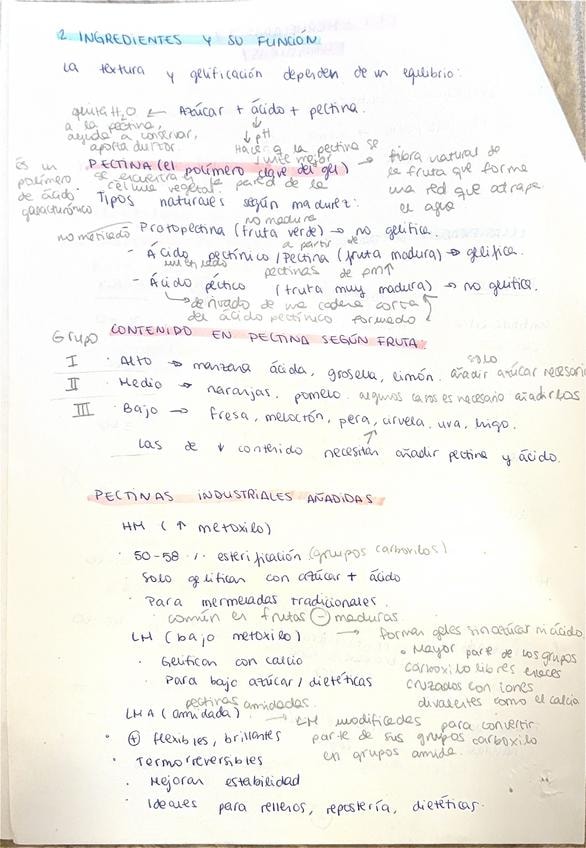 2 INGREDIENTES Y SU FUNCIÓN
La textura y gelificación dependen de un equilibrio:
quita H₂O ← Azúcar + ácido + pectina.
a la pectina, ↓ pH
ayuda a conservar, Hace q la pectina se
aporta dulzor ↓ une mejor
Es un polímero de ácido galacturónico
PECTINA (el polímero clave del gel) → fibra natural de
se encuentra en la pared de la la fruta que forma
célula vegetal. una red que atrapa
Tipos naturales según madurez: el agua
no madura
no metilado Protopectina (fruta verde) → no gelifica.
a partir de
- Ácido pectínico / Pectina (fruta madura) → gelifica.
metilado pectinas de pm↑
- Ácido péctico (fruta muy madura) → no gelifica.
↳ derivado de una cadena corta
del ácido pectínico formado
Grupo CONTENIDO EN PECTINA SEGÚN FRUTA
solo
I · Alto → manzana ácida, grosella, limón. añadir azúcar necesario
II · Medio → naranjas, pomelo. algunos casos es necesario añadirlos
III · Bajo → fresa, melocotón, pera, ciruela, uva, higo.
Las de ↓ contenido necesitan añadir pectina y ácido.
PECTINAS INDUSTRIALES AÑADIDAS
HM (↑ metoxilo)
· 50-58 % esterificación (grupos carboxilos)
Solo gelifican con azúcar + ácido
· Para mermeladas tradicionales.
común en frutas ⊖ maduras.
LM (bajo metoxilo) → forman geles sin azúcar ni ácido
· Gelifican con calcio
· Para bajo azúcar / dietéticas
• Mayor parte de los grupos
carboxilo libres enlaces
cruzados con iones
divalentes como el calcio
pectinas amidadas.
LMA (amidada) → LM modificadas para convertir
· ⊕ flexibles, brillantes parte de sus grupos carboxilo
· Termorreversibles en grupos amida.
· Mejoran estabilidad
· Ideales para rellenos, repostería, dietéticas.